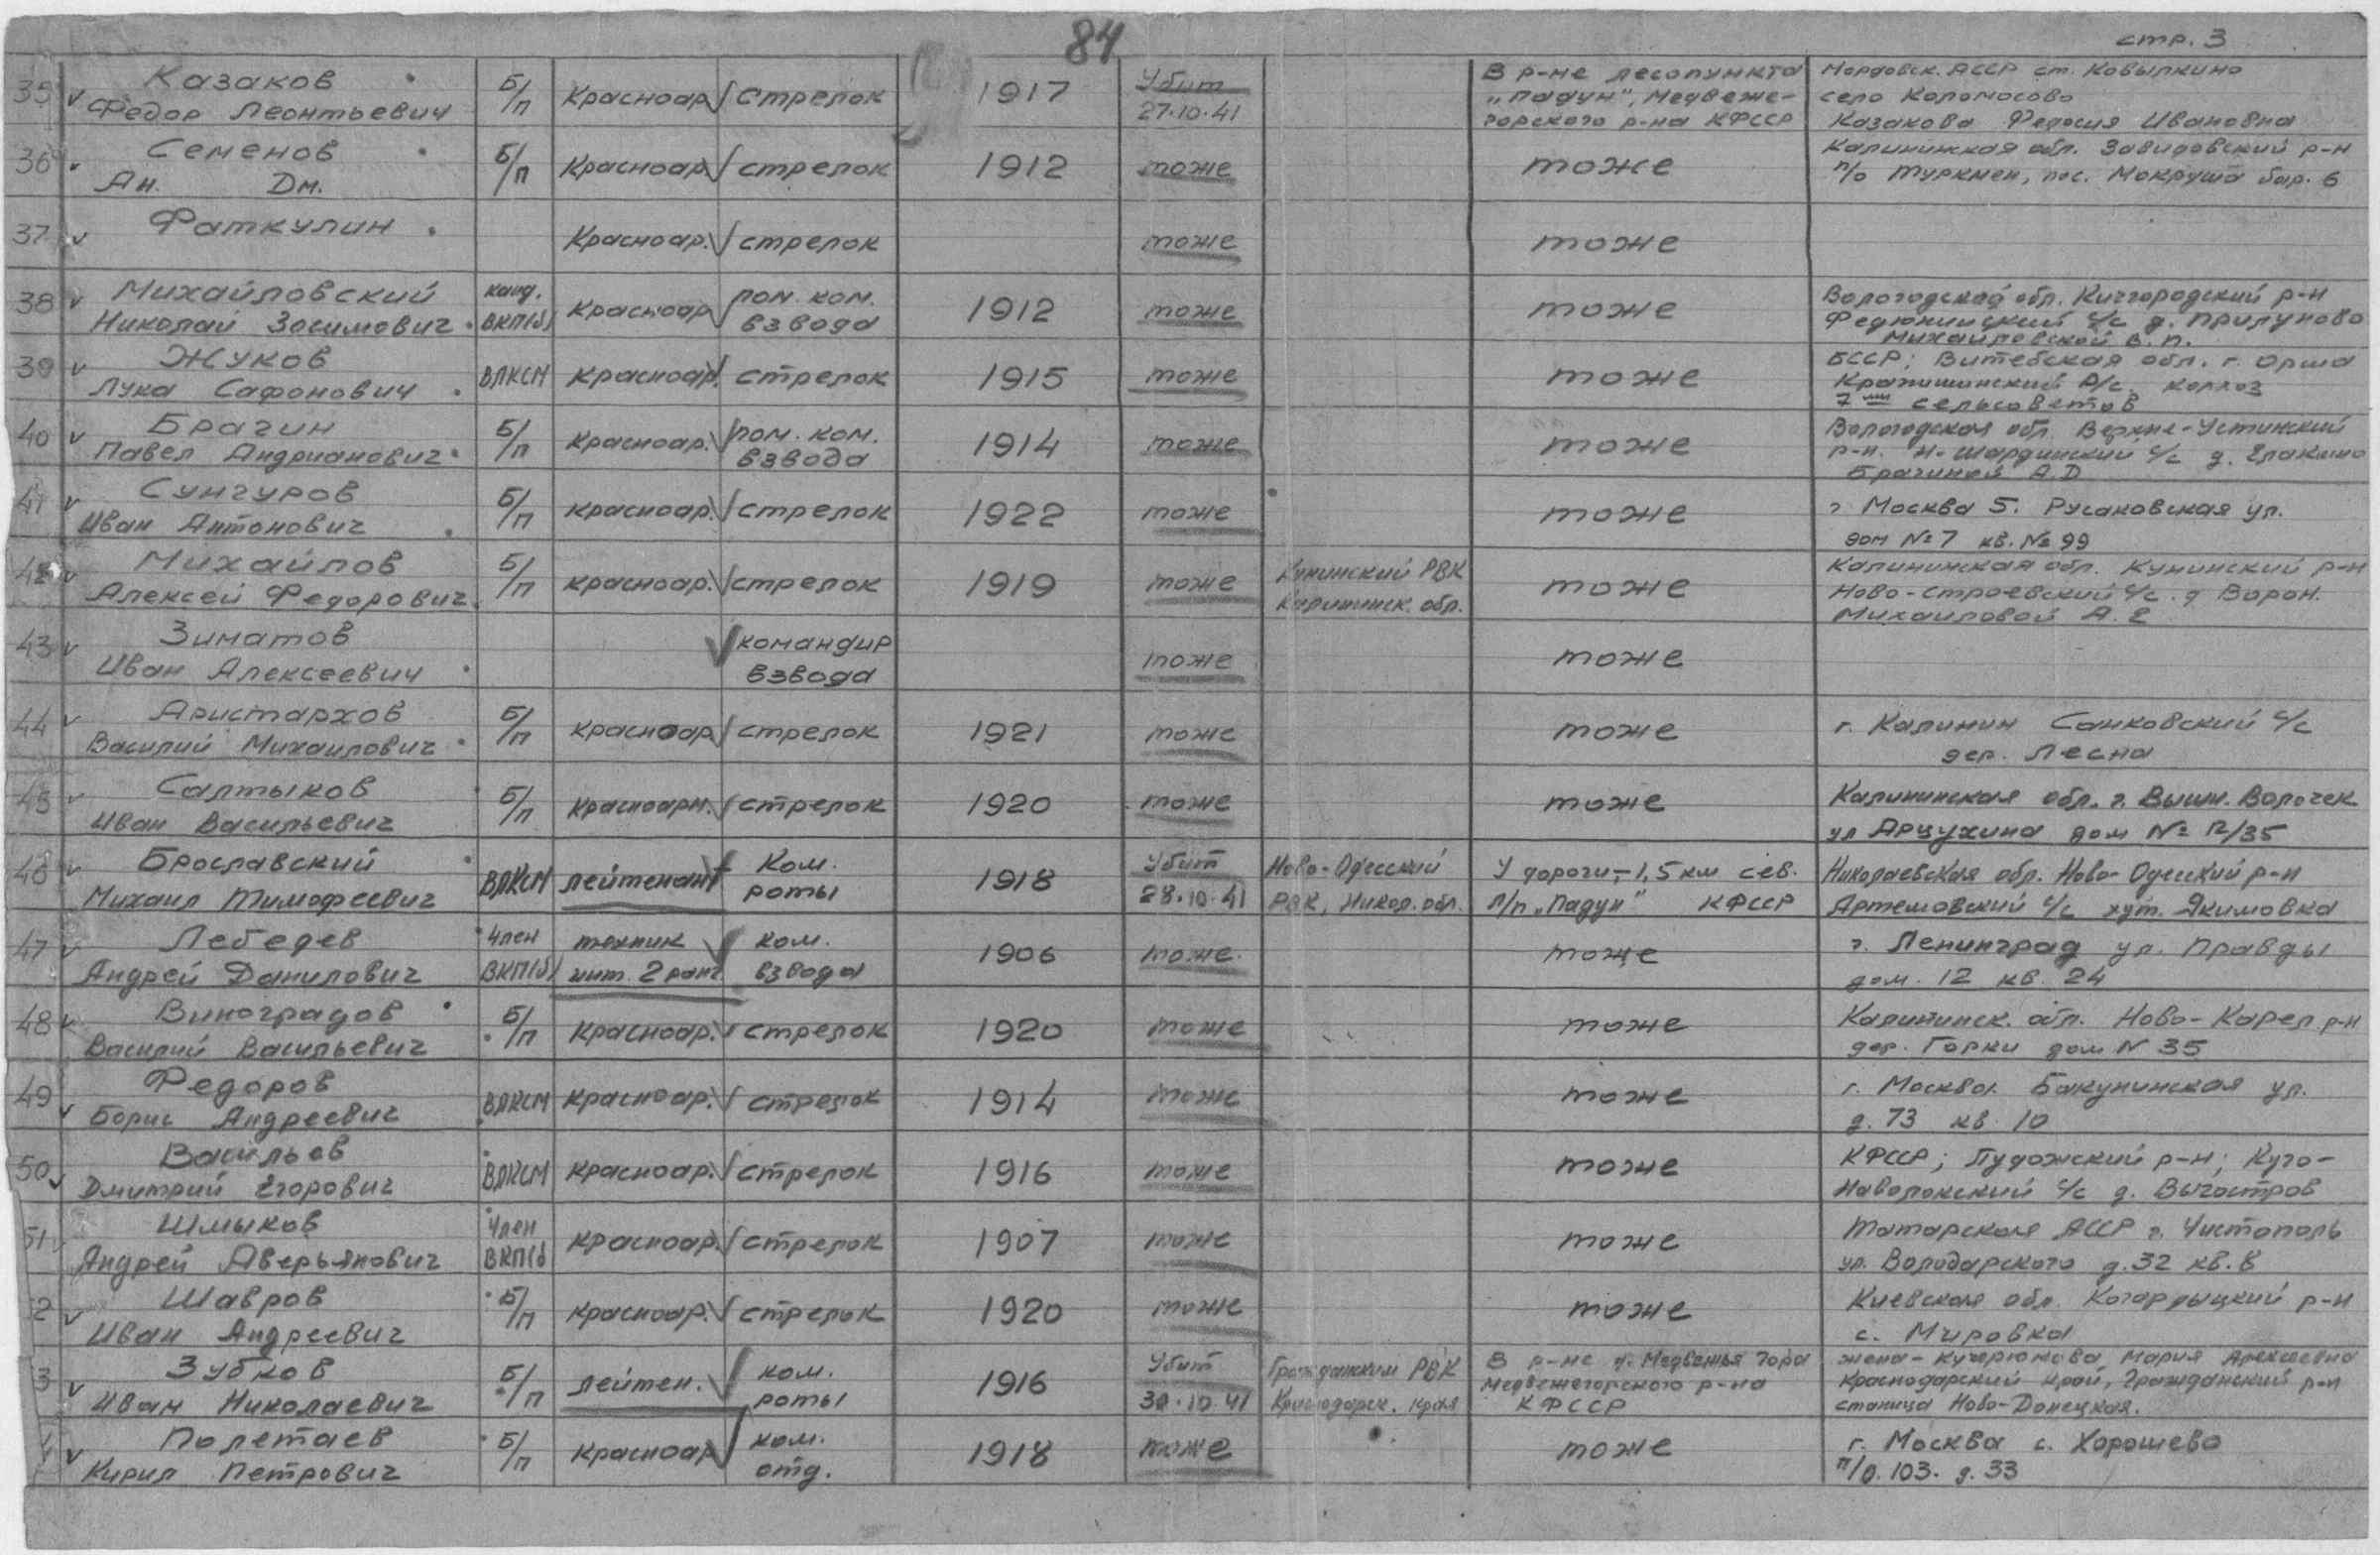 84
стр. 3
35 Казаков Федор Леонтьевич Б/п Красноар. стрелок 1917 Убит 27.10.41 В р-не лесопункта „Падун", Медвеже-горского р-на КФССР Мордовск. АССР ст. Ковылкино село Коломосово Казакова Федосия Ивановна
36 Семенов Ан. Дм. Б/п Красноар. стрелок 1912 тоже тоже Калининская обл. Завидовский р-н п/о Туркмен, пос. Мокруша бар. 6
37 Фаткулин Красноар. стрелок тоже тоже
38 Михайловский Николай Зосимович канд. ВКП(б) Красноар пом. ком. взвода 1912 тоже тоже Вологодская обл. Кичгородский р-н с/с д. Прилуково Михайловской В. п.
39 Жуков Лука Сафонович ВЛКСМ Красноар. стрелок 1915 тоже тоже БССР; Витебская обл. г. Орша с/с колхоз 7ми сельсоветов
40 Брагин Павел Андрианович Б/п Красноар. пом. ком. взвода 1914 тоже тоже Вологодская обл. Верхне-Устинский р-н. Н-Шардинский с/с д. Брагиной А.Д
41 Сунгуров Иван Антонович Б/п Красноар. стрелок 1922 тоже тоже г Москва 5. Русаковская ул. дом №7 кв. № 99
42 Михайлов Алексей Федорович Б/п Красноар. стрелок 1919 тоже Кунинский РВК Калининск. обл. тоже Калининская обл. Кунинский р-н Ново-Строевский с/с. д Ворон. Михайловой А. Е
43 Зиматов Иван Алексеевич командир взвода тоже тоже
44 Аристархов Василий Михайлович Б/п Красноар стрелок 1921 тоже тоже г. Калинин Санковский с/с дер. Лесна
45 Салтыков Иван Васильевич Б/п Красноарм. стрелок 1920 тоже тоже Калининская обл. г. Вышн. Волочек ул Арцухина дом № 12/35
46 Брославский Михаил Тимофеевич ВЛКСМ лейтенант Ком. роты 1918 Убит 28.10.41 Ново-Одесский РВК, Никол. обл. У дороги, – 1,5 км сев. Л/п „Падун" КФССР Николаевская обл. Ново-Одесский р-н Артемовский с/с хут. Якимовка
47 Лебедев Андрей Данилович Член ВКП(б) техник инт. 2 ранг ком. взвода 1906 тоже. тоже г. Ленинград ул. Правды дом. 12 кв. 24
48 Виноградов Василий Васильевич Б/п Красноар. стрелок 1920 тоже тоже Калининск. обл. Ново-Карел р-н дер. Горки дом N 35
49 Федоров Борис Андреевич ВЛКСМ Красноар. стрелок 1914 тоже тоже г. Москва. Бакунинская ул. д. 73 кв. 10
50 Васильев Дмитрий Егорович ВЛКСМ Красноар. стрелок 1916 тоже тоже КФССР; Пудожский р-н; Куго-Наволокский с/с д. Вычостров
51 Шмыков Андрей Аверьянович Член ВКП(б Красноар. стрелок 1907 тоже тоже Татарская АССР г. Чистополь ул. Володарского д. 32 кв. 8
2 Шавров Иван Андреевич Б/п Красноар. стрелок 1920 тоже тоже Киевская обл. Когарлыцкий р-н с. Мировка
3 Зубков Иван Николаевич Б/п лейтен. ком. роты 1916 Убит 30.10.41 Гражданским РВК Краснодарск. края В р-не г. Медвежья Гора Медвежегорского р-на КФССР жена – Мария Алексеевна Краснодарский край, Гражданский р-н станица Ново-Донецкая.
Полетаев Кирил Петрович Б/п Красноар ком. отд. 1918 тоже тоже г. Москва с. Хорошево п/о. 103. д. 33